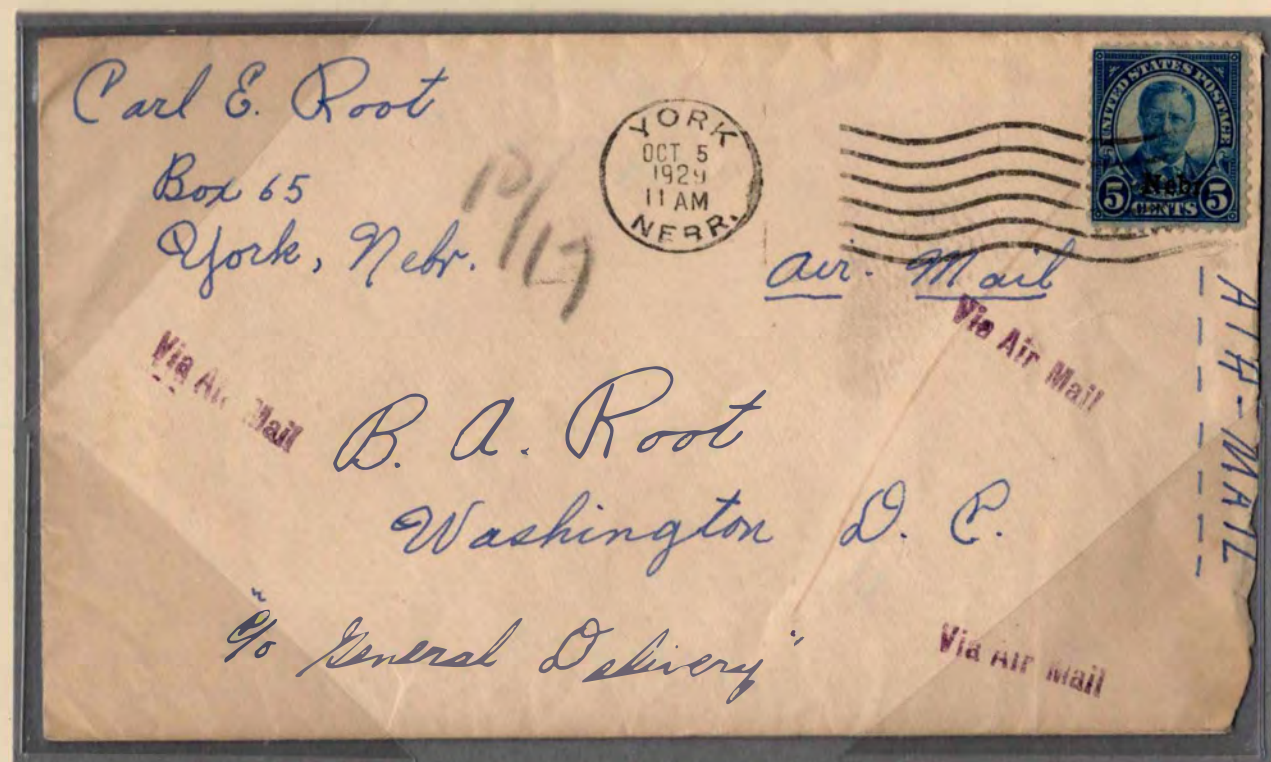 Carl E. Root
Box 65
York, Nebr.
10/17
YORK
OCT 5
1929
11 AM
NEBR.
UNITED STATES POSTAGE
Nebr
5 CENTS 5
Air-Mail
AIR-MAIL
Via Air Mail
Via Air Mail
B. A. Root
Washington D. C.
"c/o General Delivery"
Via Air Mail